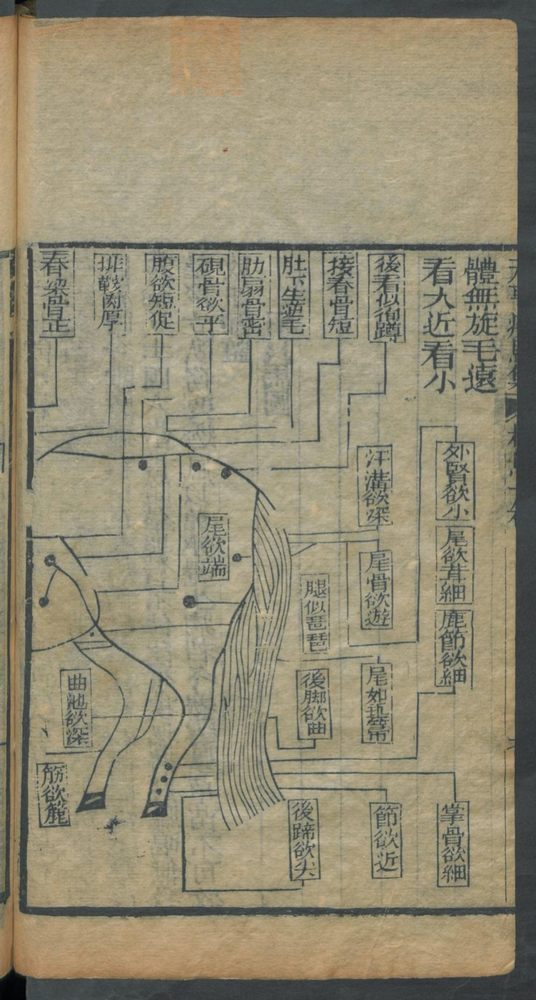 體無旋毛遠
看大近看小
後看似㣪蹲
接脊骨短
肚下生逆毛
肋扇骨密
硯骨欲平
腹欲短促
排鞍肉厚
脊梁骨正
外腎欲小
尾欲茸細
鹿節欲細
汗溝欲深
尾骨欲遊
尾欲端
腿似琵琶
後脚欲曲
曲池欲深
筋欲麄
掌骨欲細
節欲近
後蹄欲尖